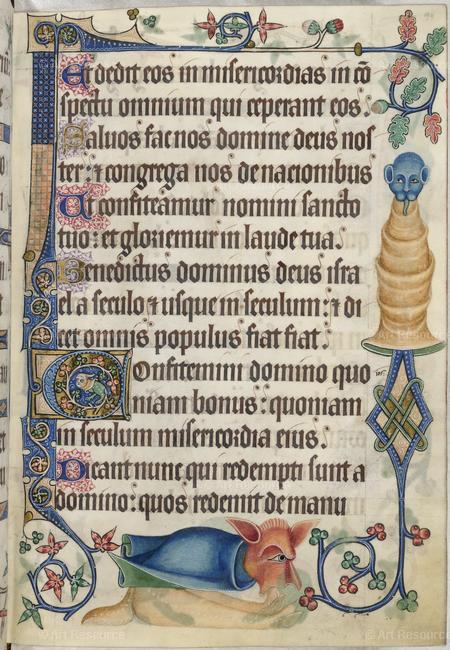 Et dedit eos in misericordias in cō
spectu omnium qui ceperant eos.
Saluos fac nos domine deus nos
ter: ⁊ congrega nos de nacionibus
Ut confiteamur nomini sancto
tuo: et gloriemur in laude tua.
Benedictus dominus deus isra
el a seculo ⁊ usque in seculum: ⁊ di
cet omnis populus fiat fiat.
Confitemini domino quo
niam bonus: quoniam
in seculum misericordia eius.
Dicant nunc qui redempti sunt a
domino: quos redemit de manu
© Art Resource
© Art Resource